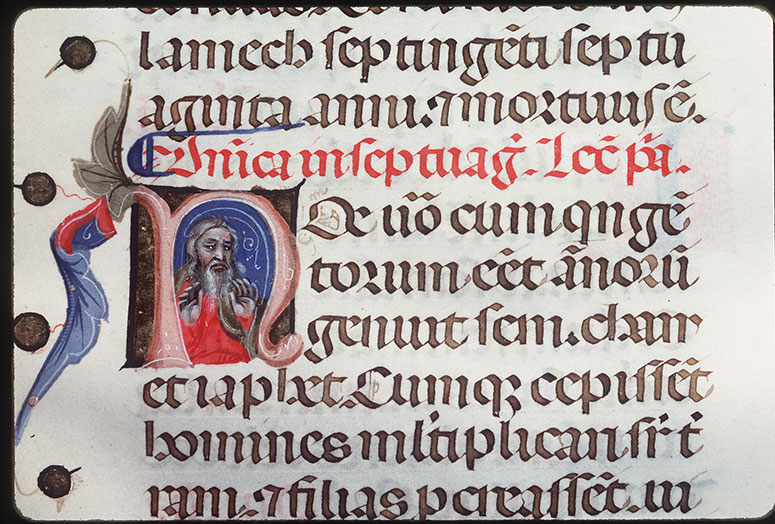 lamech septingẽti septu
aginta anni ⁊ mortuus ẽ.
Dñica in septuaḡ. Lec̃ p̃a.
Noe ũo cum qngẽ
torum eẽt ãnorũ
genuit sem. cham
et iaphet Cumqꝫ cepissẽt
homines mĩtiplicari sr̃ t̃
ram. ⁊ filias ꝓcreassẽt. ui